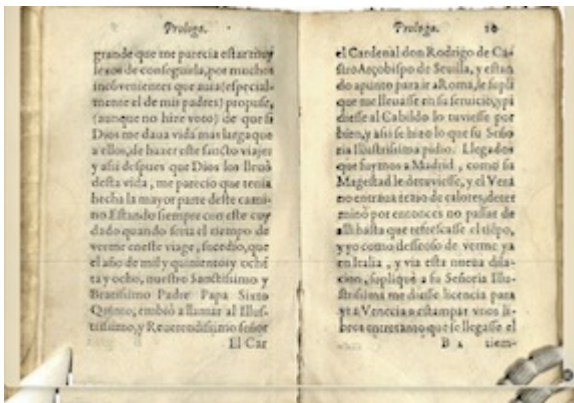 Prologo.
grande que me parecia estar muy
lexos de conseguirla, por muchos
inconvenientes que auia (especial-
mente el de mis padres) propuse,
(aunque no hize voto) de que si
Dios me daua vida mas larga que
a ellos, de hazer este sancto viaje:
y assi despues que Dios los lleuò
desta vida, me parecio que tenia
hecha la mayor parte deste cami-
no. Estando siempre con este cuy
dado quando seria el tiempo de
verme en este viage, sucedio, que
el año de mil y quinientos y oché
ta y ocho, nuestro Sanctissimo y
Beatissimo Padre Papa Sixto
Quinto, embiò a llamar al Illus-
trissimo, y Reuerendissimo señor
El Car
Prologo. 10
el Cardenal don Rodrigo de Ca-
stro Arçobispo de Seuilla, y estan
do apunto para ir a Roma, le supli
que me lleuasse en su seruicio, y pi
diesse al Cabildo lo tuuiesse por
bien, y assi se hizo lo que su Seño
ria Illustrissima pidio. Llegados
que fuymos a Madrid, como su
Magestad le detuuiesse, y el Vera
no entraua rezio de calores, deter
minò por entonces no passar de
alli hasta que refrescasse el tiépo,
y yo como desseoso de verme ya
en Italia, y via esta nueua dila-
cion, supliquè a su Señoria Illu-
strissima me diesse licencia para
yr a Venecia a estampar vnos li-
bros entretanto que se llegasse el
B 2 tiem-